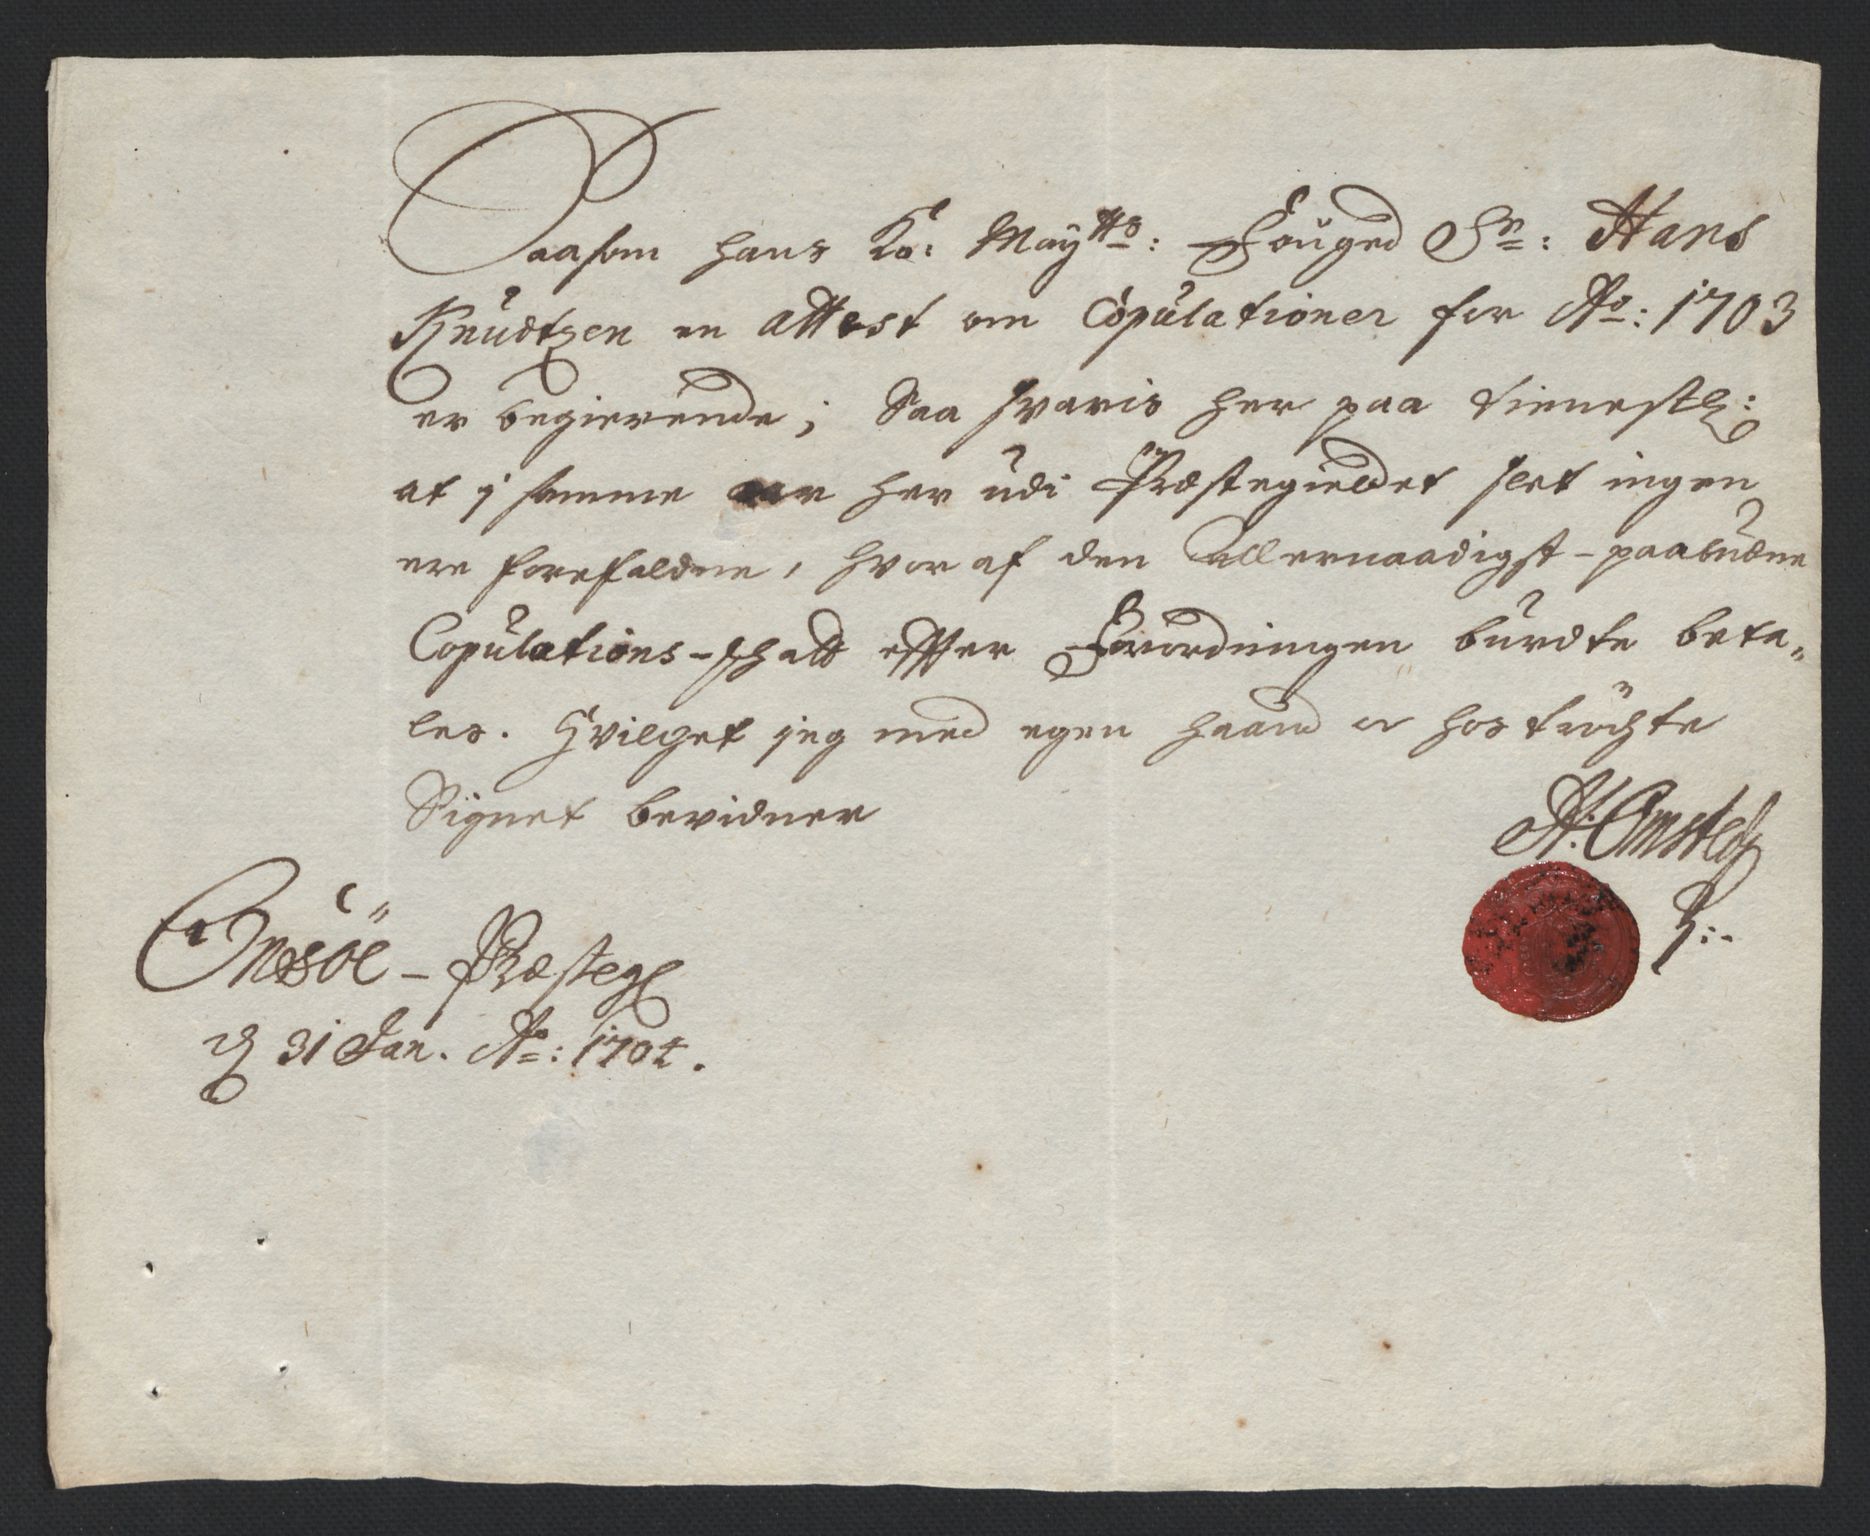 Saasom hans Ko: Maytts: Fouged Sr: Hans
Knudtzen en attest om Copulationer for Ao: 1703
er begierende; Saa svaris her paa tienestl:
at j samme aar her udi Præstegieldet slet ingen
ere forefaldne, hvor af den allernaadigst-paabudne
Copulations-schatt effter Forordningen burdte beta-
les. Hvilchet jeg med egen haand oc hos tröchte
Signet bevidner
H: Omsted
Onsöe - Præsteg
31 Jan. Ao: 1704.